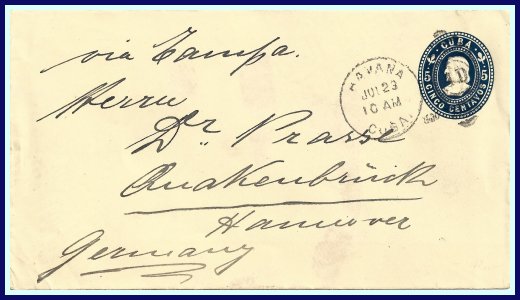 via Tampa.
CUBA
5 5
CINCO CENTAVOS
HAVANA
JUL 23
10 AM
CUBA.
Herrn
Dr. Prasse
Quakenbrück
Hannover
Germany